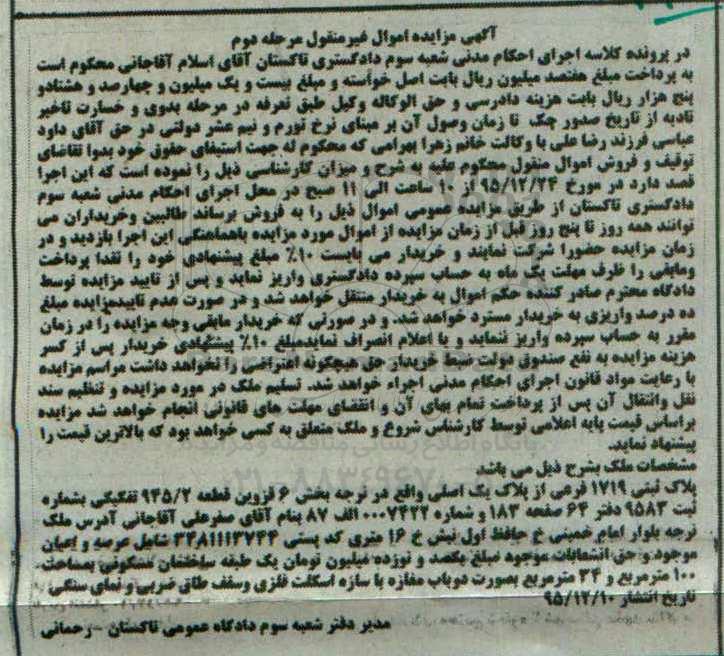 آگهی مزایده اموال غیرمنقول مرحله دوم
در پرونده کلاسه اجرای احکام مدنی شعبه سوم دادگستری تاکستان آقای اسلام آقاجانی محکوم است
به پرداخت مبلغ هفتصد میلیون ریال بابت اصل خواسته و مبلغ بیست و یک میلیون و چهارصد و هشتادو
پنج هزار ریال بابت هزینه دادرسی و حق الوکاله وکیل طبق تعرفه در مرحله بدوی و خسارت تاخیر
تادیه از تاریخ صدور چک تا زمان وصول آن بر مبنای نرخ تورم و نیم عشر دولتی در حق آقای داود
عباسی فرزند رضا علی با وکالت خانم زهرا بهرامی که محکوم له جهت استیفای حقوق خود بدوا تقاضای
توقیف و فروش اموال منقول محکوم علیه به شرح و میزان کارشناسی ذیل را نموده است که این اجرا
قصد دارد در مورخ ۹۵/۱۲/۲۴ از ۱۰ ساعت الی ۱۱ صبح در محل اجرای احکام مدنی شعبه سوم
دادگستری تاکستان از طریق مزایده عمومی اموال ذیل را به فروش برساند طالبین وخریداران می
توانند همه روز تا پنج روز قبل از زمان مزایده از اموال مورد مزایده باهماهنگی این اجرا بازدید و در
زمان مزایده حضورا شرکت نمایند و خریدار می بایست ۱۰٪ مبلغ پیشنهادی خود را نقدا پرداخت
ومابقی را ظرف مهلت یک ماه به حساب سپرده دادگستری واریز نماید و پس از تایید مزایده توسط
دادگاه محترم صادر کننده حکم اموال به خریدار منتقل خواهد شد و در صورت عدم تاییدمزایده مبلغ
ده درصد واریزی به خریدار مسترد خواهد شد. و در صورتی که خریدار مابقی وجه مزایده را در زمان
مقرر به حساب سپرده واریز ننماید و یا اعلام انصراف نمایدمبلغ ۱۰٪ پیشنهادی خریدار پس از کسر
هزینه مزایده به نفع صندوق دولت ضبط خریدار حق هیچگونه اعتراضی را نخواهد داشت مراسم مزایده
با رعایت مواد قانون اجرای احکام مدنی اجراء خواهد شد. تسلیم ملک در مورد مزایده و تنظیم سند
نقل وانتقال آن پس از پرداخت تمام بهای آن و انقضای مهلت های قانونی انجام خواهد شد مزایده
براساس قیمت پایه اعلامی توسط کارشناس شروع و ملک متعلق به کسی خواهد بود که بالاترین قیمت را
پیشنهاد نماید.
مشخصات ملک بشرح ذیل می باشد
پلاک ثبتی ۱۷۱۹ فرعی از پلاک یک اصلی واقع در نرجه بخش ۶ قزوین قطعه ۹۴۵/۲ تفکیکی بشماره
ثبت ۹۵۸۳ دفتر ۶۴ صفحه ۱۸۳ و شماره ۰۰۰۷۴۲۲ الف ۸۷ بنام آقای صفرعلی آقاجانی آدرس ملک
نرجه بلوار امام خمینی خ حافظ اول نبش خ ۱۶ متری کد پستی ۳۴۸۱۱۱۳۷۴۴ شامل عرصه و اعیان
موجود و حق انشعابات موجود مبلغ یکصد و نوزده میلیون تومان یک طبقه ساختمان مسکونی بمساحت
۱۰۰ مترمربع و ۳۴ مترمربع بصورت دوباب مغازه با سازه اسکلت فلزی وسقف طاق ضربی و نمای سنگی
تاریخ انتشار ۹۵/۱۲/۱۰
مدیر دفتر شعبه سوم دادگاه عمومی تاکستان - رحمانی
پایگاه اطلاع رسانی مناقصه و مزایده
۰۲۱-۸۸۳۴۹۶۷۰